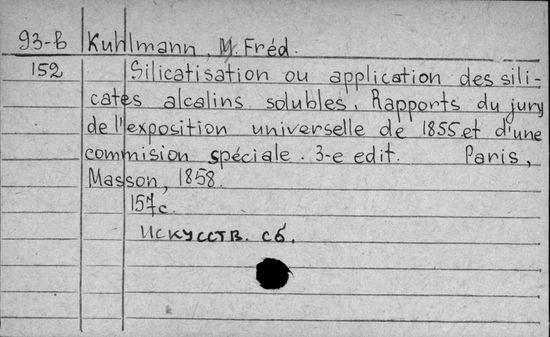 93-B Kuhlmann, M. Fréd.
152 Silicatisation ou application des sili-
cates alcalins solubles. Rapports du jury
de l'exposition universelle de 1855 et d'une
commision spéciale. 3-e edit. Paris,
Masson, 1858.
157 c.
Искусств. сб.